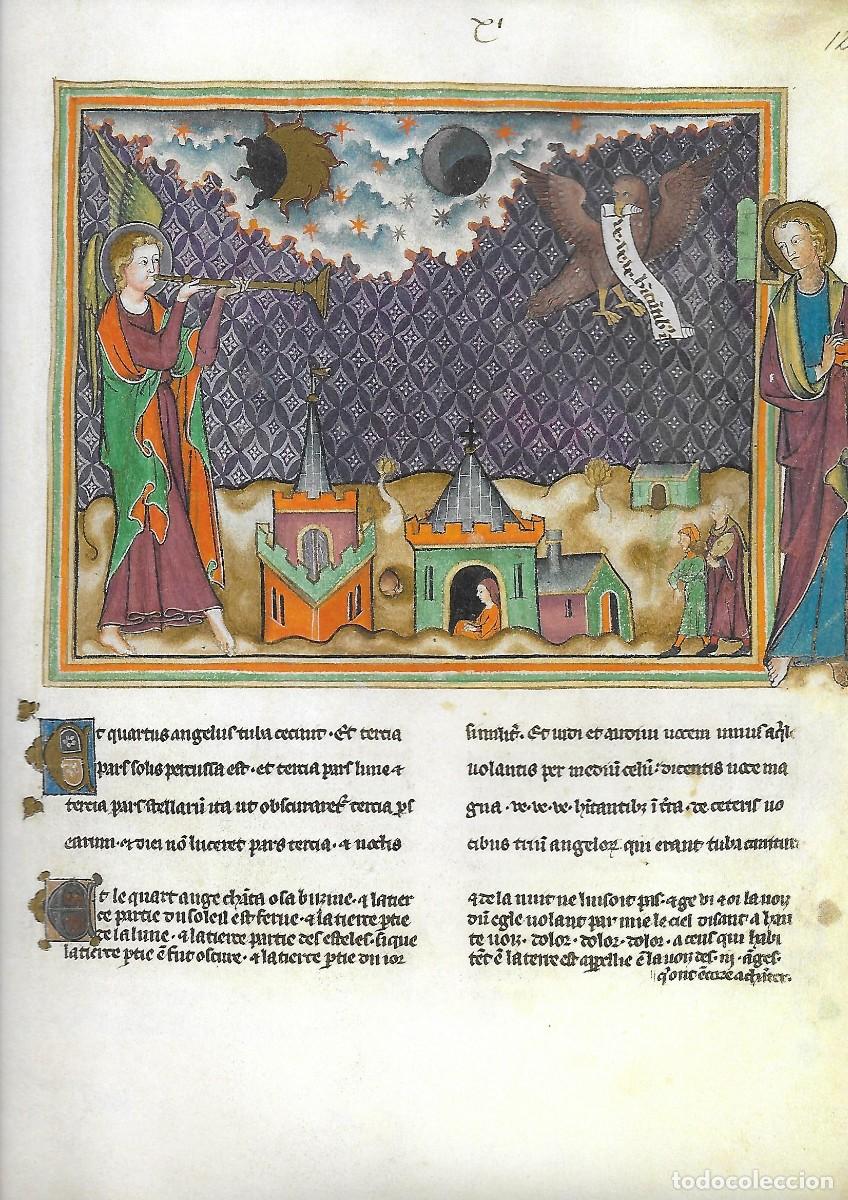 12
ve·ve·ve·h̄itantib;
Et quartus angelus tuba cecinit · Et tercia
pars solis percussa est · et tercia pars lune ⁊
tercia pars stellarū ita ut obscuraret᷑ tercia ps
earum · ⁊ diei nō luceret pars tercia · ⁊ noctis
similit᷑. Et vidi et audivi vocem unius aq̄le
volantis per mediū celū: dicentis voce ma
gna · ve · ve · ve · h̄itantib; ī t̄ra · de ceteris vo
cibus triū angeloꝝ qui erant tuba canituri
Et le quart ange chāta o sa buzine · ⁊ la tier
ce partie du soleil est ferue · ⁊ la tierce ptie
de la lune · ⁊ la tierce partie des esteles · si que
la tierce ptie ē fut oscure · ⁊ la tierce ptie du ior
⁊ de la nuit ne luisoit pas · ⁊ ge vi ⁊ oi la voiz
dū egle volant par mie le ciel disant a hau
te voiz · dolor · dolor · dolor · a ceus qui habi
tēt ē la terre est appellie ē la voiz des · iij · āges ·
q̓ ont ēcore a chāter.
todocoleccion